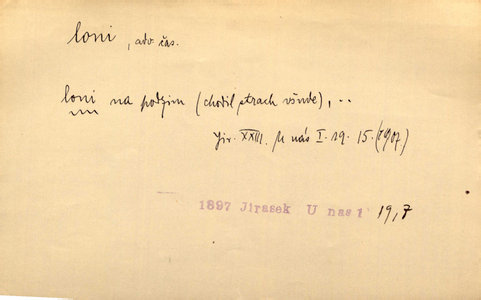 loni, adv. čas.
loni na podzim (chodil strach všude), ..
Jir. XXIII. U nás I. 19. 15. (1907)
1897 Jirasek U nas 1 19,7